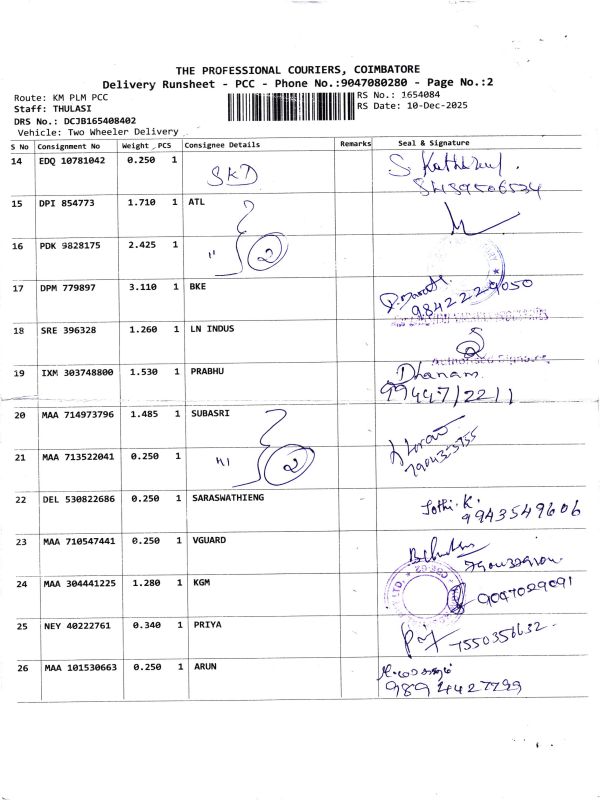 THE PROFESSIONAL COURIERS, COIMBATORE
Delivery Runsheet - PCC - Phone No.:9047080280 - Page No.:2
Route: KM PLM PCC RS No.: 1654084
Staff: THULASI RS Date: 10-Dec-2025
DRS No.: DCJB165408402
Vehicle: Two Wheeler Delivery
S No Consignment No Weight PCS Consignee Details Remarks Seal & Signature
14 EDQ 10781042 0.250 1 SKD
15 DPI 854773 1.710 1 ATL
16 PDK 9828175 2.425 1 " 2
17 DPM 779897 3.110 1 BKE
9842229050
18 SRE 396328 1.260 1 LN INDUS
Authorised Signature
19 IXM 303748800 1.530 1 PRABHU Dhanam
99447/2211
20 MAA 714973796 1.485 1 SUBASRI
21 MAA 713522041 0.250 1 " 2
22 DEL 530822686 0.250 1 SARASWATHIENG Jothi.K.
9943549606
23 MAA 710547441 0.250 1 VGUARD
24 MAA 304441225 1.280 1 KGM 9047029091
25 NEY 40222761 0.340 1 PRIYA 7550356632
26 MAA 101530663 0.250 1 ARUN
9894427799